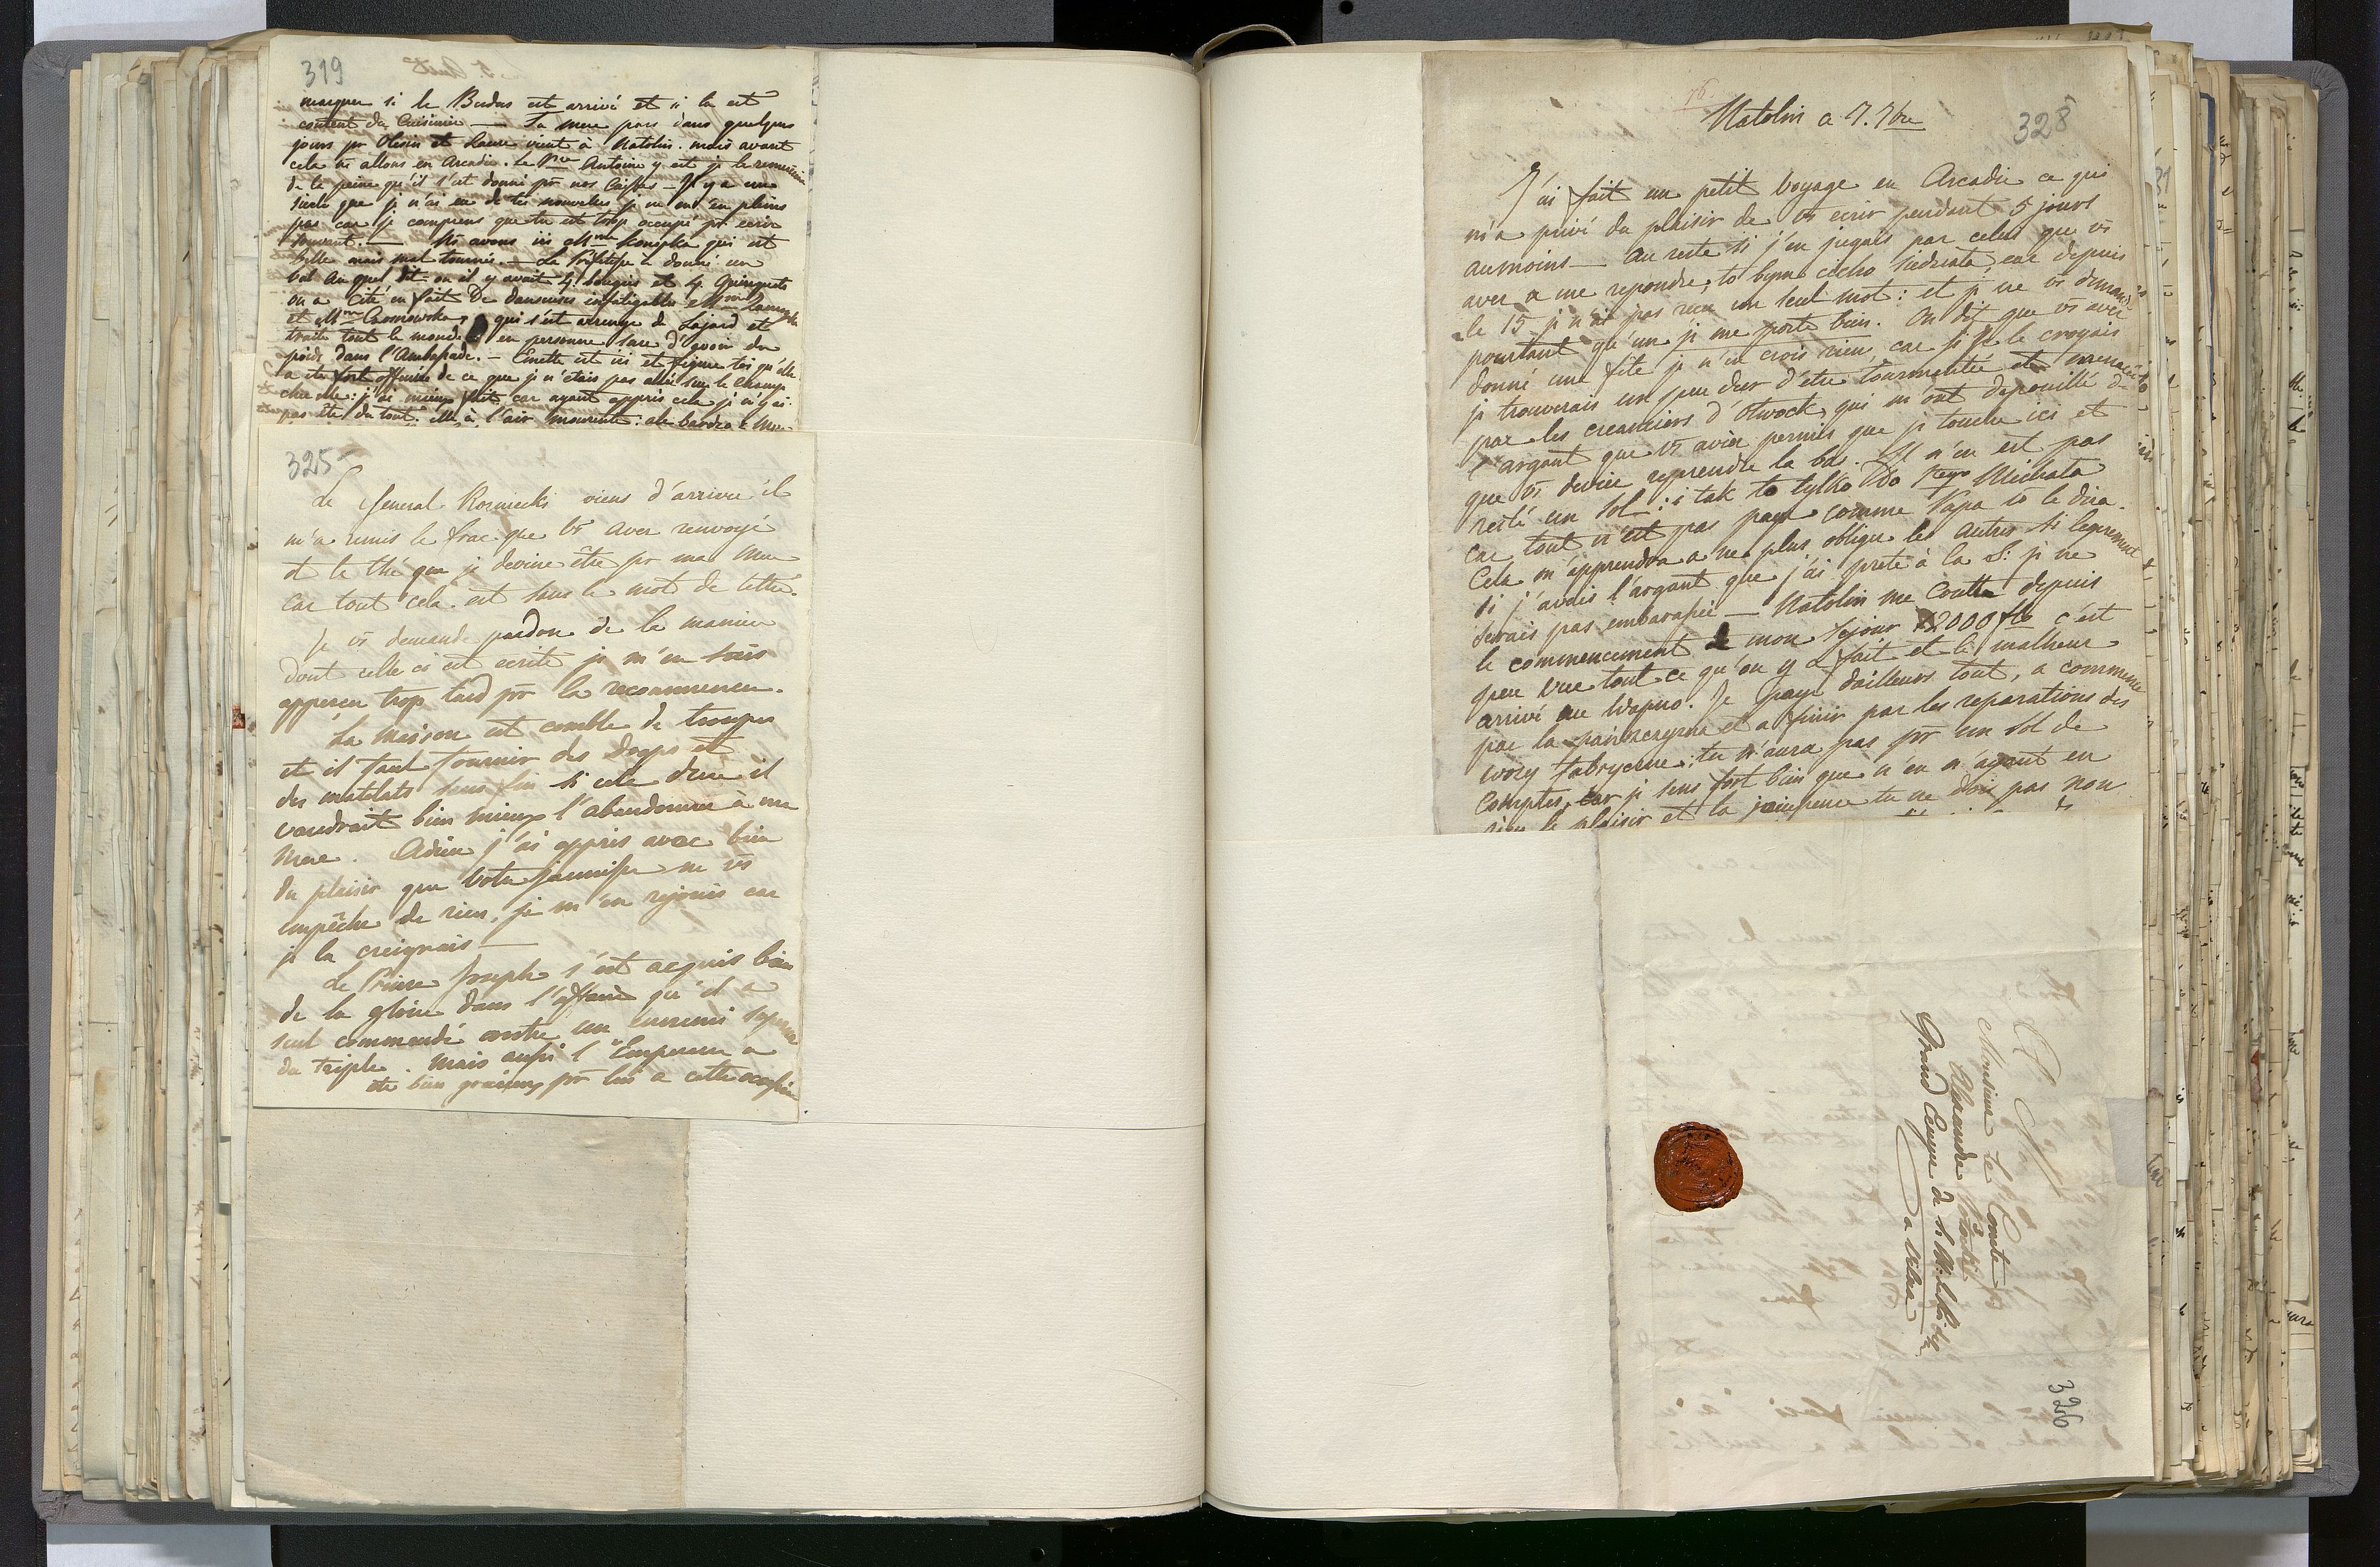 319
marquer si le Budus est arrivé et si la est
content du Cuisinier — Ta mere pars dans quelques
jours pr Olesin et Laure vient à Natolin. mais avant
cela ns allons en Arcadie. Le Pce Antoine y est je le remercierai
de la peine qu'il s'est donné pr nos Caisses — Il y a un
siecle que je n'ai eu de tes nouvelles je ne m'en plains
pas car je comprens que tu est trop occupé pr ecrir
souvent. — Ns avons ici Mme Konopka qui est
belle mais mal tournée. — Le a donné un
bal au quel dit-on il y avait 4 bougies et 4 Quinquets
on a cité en fait De danseuses infatigables Mme
et Mme qui s'est arrengé de Lajard et
traite tout le monde en personne sure d'avoir du
poids dans l'Ambassade. — Emette est ici et figure toi qu'elle
a eté fort offensée de ce que je n'étais pas allée sur le champ
chez elle: j'ai mieux fait car ayant appris cela je n'y ai
pas été du tout. elle à l'air mourante: ale bardzo
325
Le General Rozniecki viens d'arriver il
m'a remis le frac que vs aver renvoyé
et le thé que je devine être pr ma Mere
Car tout cela est sans le mot de lettre.
Je vs demande pardon de la maniere
dont celle ci est ecrite je m'en suis
apperçu trop tard pr la recommencer.
La Maison est comble de troupes
et il faut fournir des draps et
des matelats sans fin si cela dure il
vaudrait bien mieux l'abandonner à ma
Mere. Adieu j'ai appris avec bien
du plaisir que votre jaunisse ne vs
empêche de rien, je m'en rejouis car
je la creignais —
Le Prince Joseph s'est acquis bien
de la gloire dans l'affaire qu'il a
seul commandé contre un ennemi superieur
du triple. Mais aussi l'Empereur a
eté bien gracieux pr lui a cette occasion
76.
Natolin a 7. 7bre
328
J'ai fait un petit voyage en Arcadie ce qui
m'a privé du plaisir de vs ecrir pendant 5 jours
aumoins — Au reste si j'en jugais par celui que vs
aver a me repondre, to bym cicho siedziala, car depuis
le 15 je n'ai pas recu un seul mot: et je ne vs demande
pourtant qu'un je me porte bien. On dit que vs aver
donné une fête je n'en crois rien, car si je le croyais
je trouverais un peu dur d'être tourmentée et menacée
par les creanciers d'Otwock, qui m'ont depouillé de
l'argant que vs avier permis que je touche ici et
que vs devier reprendre la bas. Il n'en est pas
resté un sol: i tak to tylko Do Sego Michala
car tout n'est pas payé comme Papa vs le dira.
Cela m'apprendra a ne plus obliger les autres si legerement
si j'avais l'argant que j'ai preté à la S: je ne
serais pas embarassée — Natolin me Coutte depuis
le commencement de mon sejour 12000 fls c'est
peu vue tout ce qu'on y a fait et le malheur
arrivé au Wapno. Je paye dailleurs tout, a commencer
par la et a finir par les reparations des
wozy fabryczne: tu n'aura pas pr un sol de
Comptes, car je sens fort bien que n'en n'ayant en
rien le plaisir et la jouissance tu ne dois pas non
Monsieur le Comte
Alexandre Potocki
Grand Ecuyer de
a Vilna
326